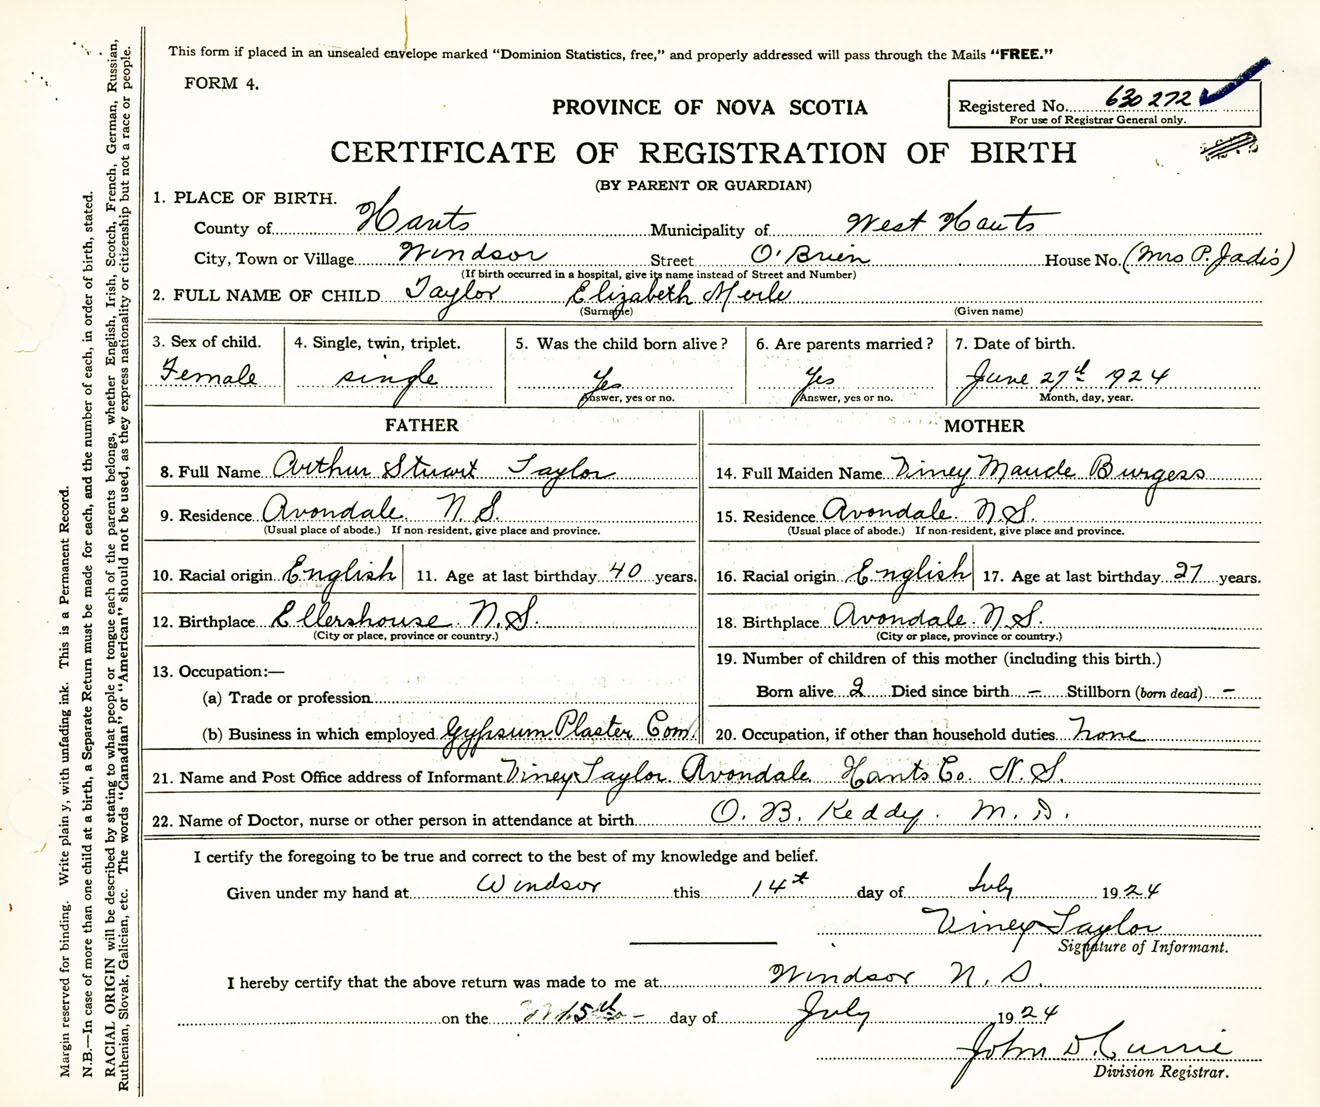 This form if placed in an unsealed envelope marked "Dominion Statistics, free," and properly addressed will pass through the Mails "FREE."
FORM 4.
Registered No. 630272
For use of Registrar General only.
PROVINCE OF NOVA SCOTIA
CERTIFICATE OF REGISTRATION OF BIRTH
(BY PARENT OR GUARDIAN)
1. PLACE OF BIRTH.
County of Hants Municipality of West Hants
City, Town or Village Windsor Street O'Brien House No. (Mrs P. Jadis)
(If birth occurred in a hospital, give its name instead of Street and Number)
2. FULL NAME OF CHILD Taylor Elizabeth Merle
(Surname) (Given name)
3. Sex of child. 4. Single, twin, triplet. 5. Was the child born alive? 6. Are parents married? 7. Date of birth.
Female single Yes Yes June 27th 1924
Answer, yes or no. Answer, yes or no. Month, day, year.
FATHER MOTHER
8. Full Name Arthur Stuart Taylor 14. Full Maiden Name Viney Maude Burgess
9. Residence Avondale N.S. 15. Residence Avondale. N.S.
(Usual place of abode.) If non-resident, give place and province. (Usual place of abode.) If non-resident, give place and province.
10. Racial origin English 11. Age at last birthday 40 years. 16. Racial origin English 17. Age at last birthday 27 years.
12. Birthplace Ellershouse N.S. 18. Birthplace Avondale. N.S.
(City or place, province or country.) (City or place, province or country.)
13. Occupation:— 19. Number of children of this mother (including this birth.)
(a) Trade or profession Born alive 2 Died since birth – Stillborn (born dead) –
(b) Business in which employed Gypsum Plaster Com. 20. Occupation, if other than household duties None
21. Name and Post Office address of Informant Viney Taylor Avondale Hants Co. N.S.
22. Name of Doctor, nurse or other person in attendance at birth O. B. Keddy. M. D.
I certify the foregoing to be true and correct to the best of my knowledge and belief.
Given under my hand at Windsor this 14th day of July 1924
Viney Taylor
Signature of Informant.
I hereby certify that the above return was made to me at Windsor N. S.
on the 15th day of July 1924
John D. Currie
Division Registrar.
Margin reserved for binding. Write plainly, with unfading ink. This is a Permanent Record.
N.B.—In case of more than one child at a birth, a Separate Return must be made for each, and the number of each, in order of birth, stated.
RACIAL ORIGIN will be described by stating to what people or tongue each of the parents belongs, whether English, Irish, Scotch, French, German, Russian,
Ruthenian, Slovak, Galician, etc. The words "Canadian" or "American" should not be used, as they express nationality or citizenship but not a race or people.